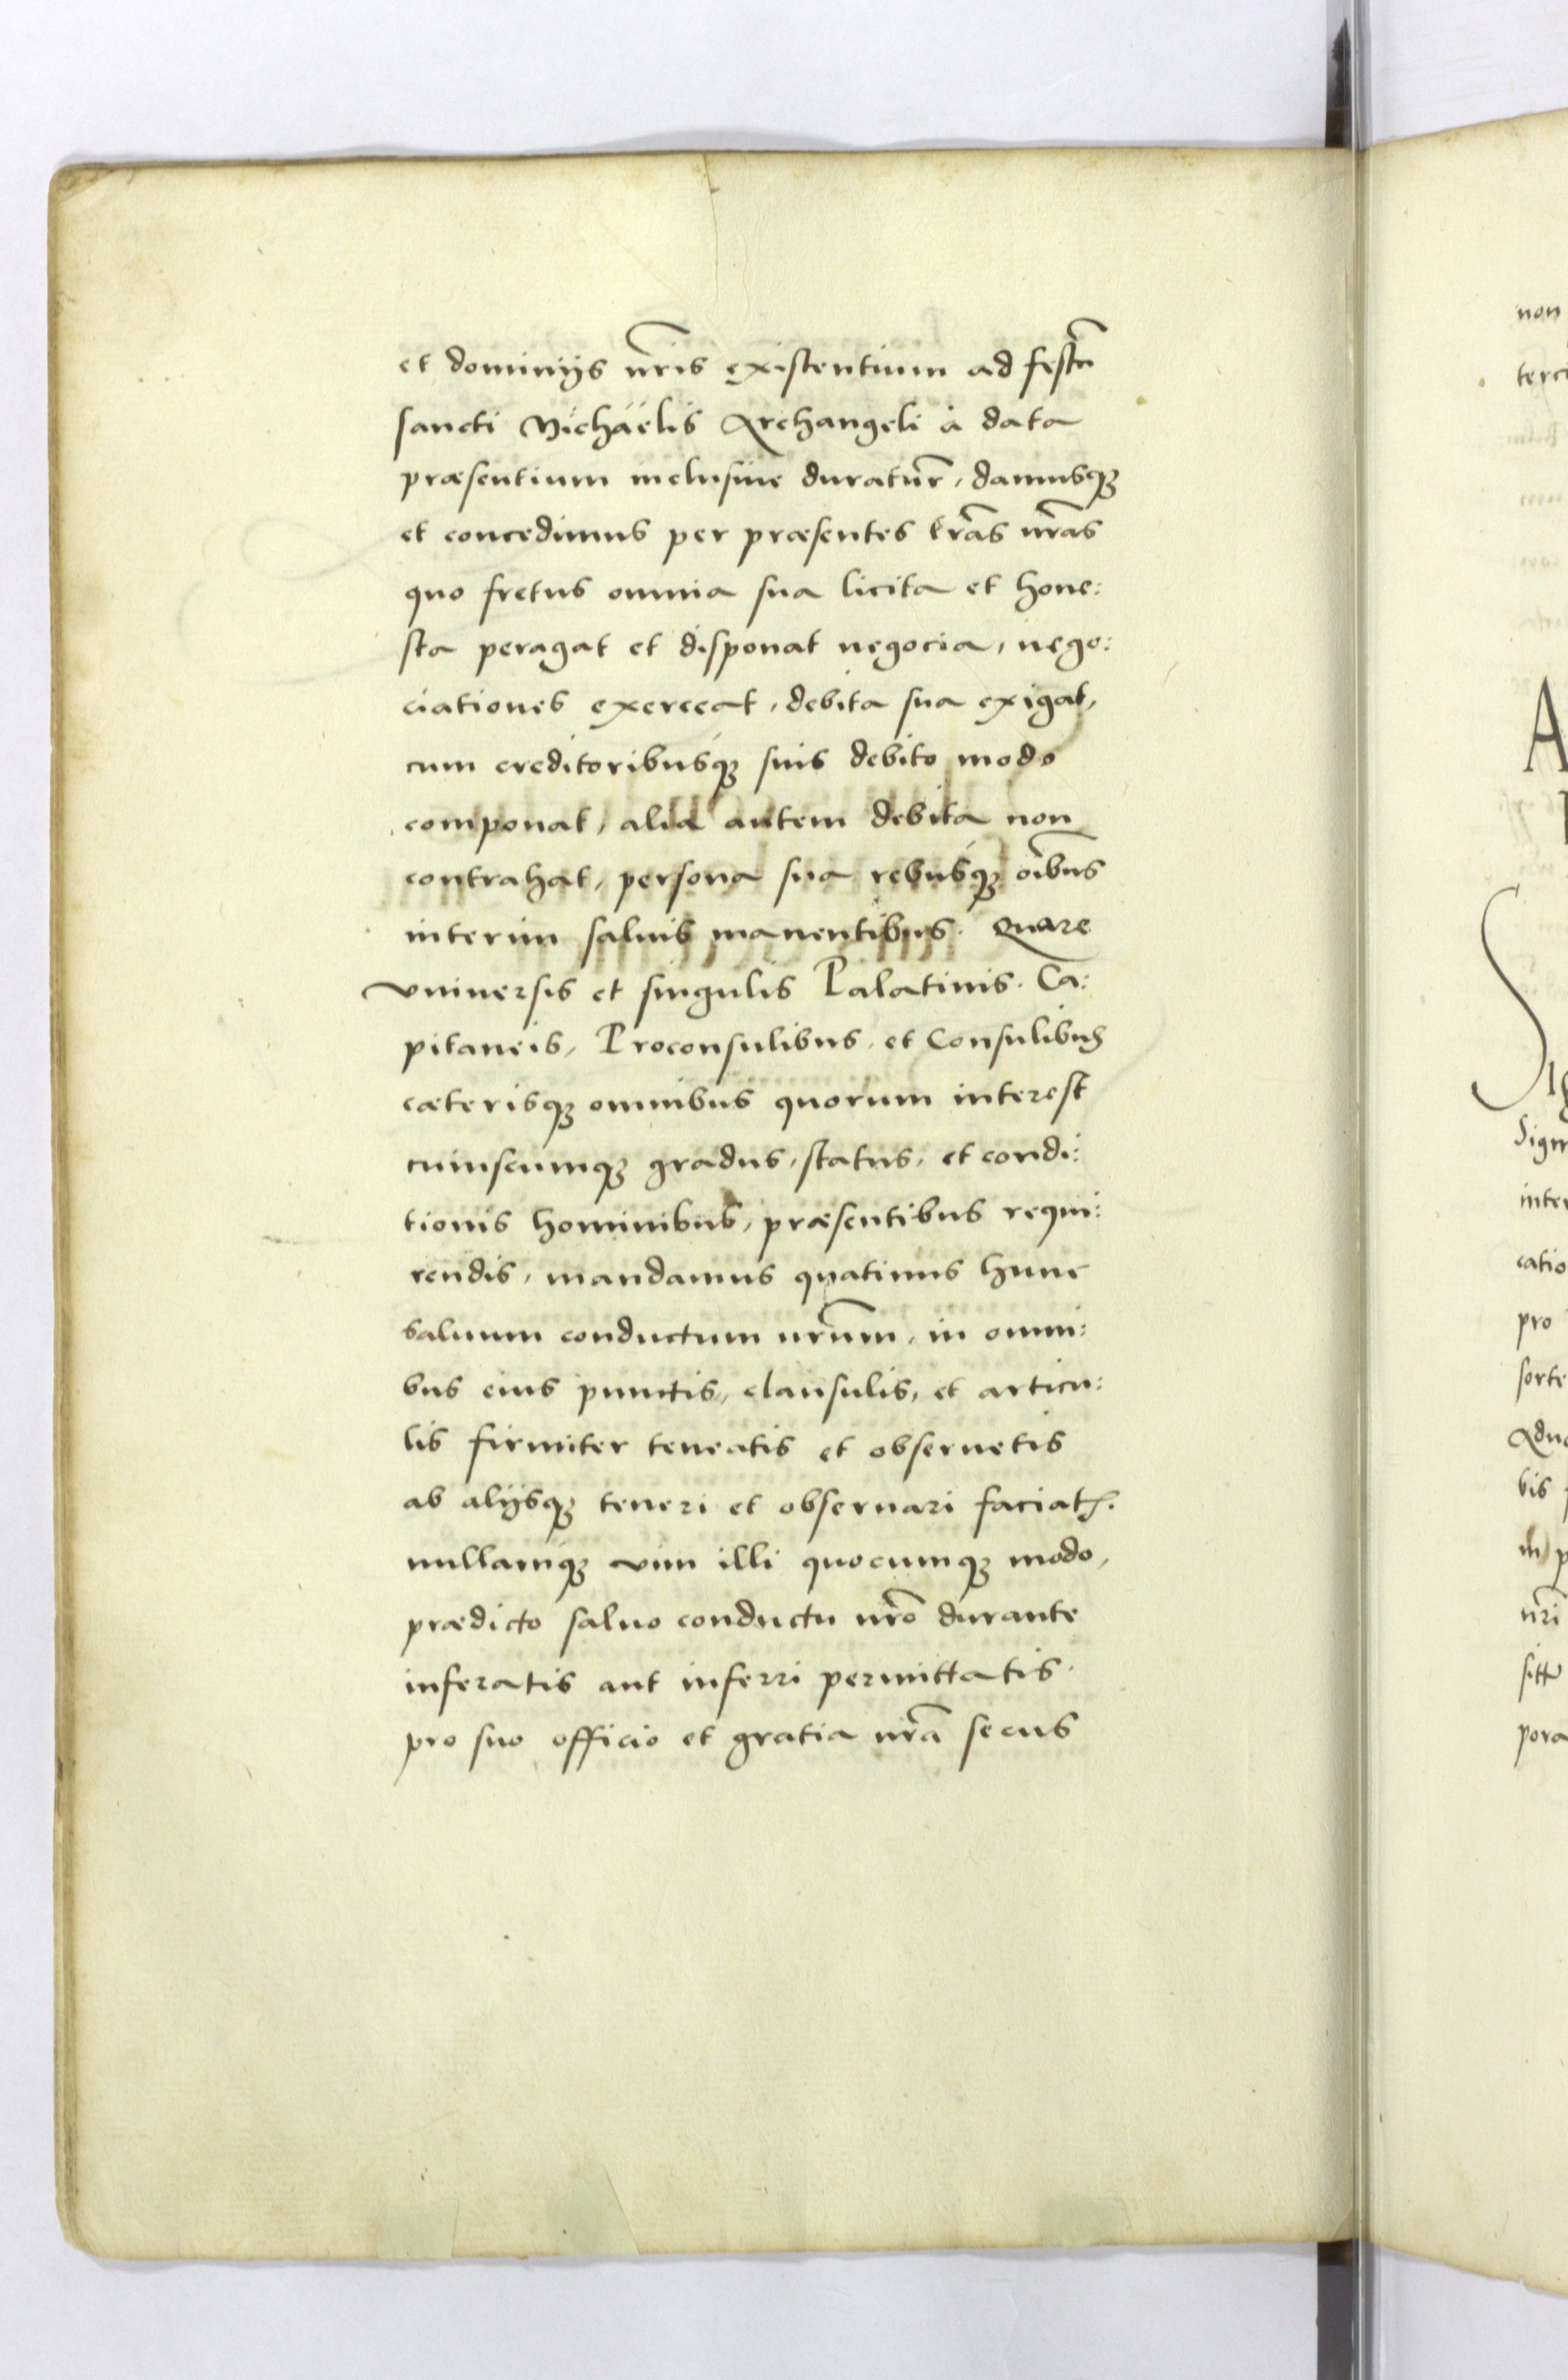 et dominijs nr̄is existentium ad festū
sancti Michaëlis Archangeli à data
præsentium inclusiue duratur̄, damusq₃
et concedimus per præsentes lr̄as nr̄as
quo fretus omnia sua licita et hone:
sta peragat et disponat negocia, nego:
ciationes exerceat, debita sua exigat,
cum creditoribusq₃ suis debito modo
componat, alia autem debita non
contrahat, persona sua rebusq₃ oībus
interim saluis manentibus. Quare
vniuersis et singulis Palatinis. Ca:
pitaneis, Proconsulibus. et Consulibus
cæterisq₃ omnibus quorum interest
cuiuscumq₃ gradus, status, et condi:
tionis hominibus, præsentibus requi:
rendis, mandamus quatinus hunc
saluum conductum nr̄um, in omni:
bus eius punctis, clausulis, et articu:
lis firmiter teneatis et obseruetis
ab alijsq₃ teneri et obseruari faciatꝭ.
nullamq₃ vim illi quocumq₃ modo,
prædicto saluo conductu nr̄o durante
inferatis aut inferri permittatis.
pro suo officio et gratia nr̄a secus
non
A
inter
catio
pro
sorte
bis
nr̄i
pora